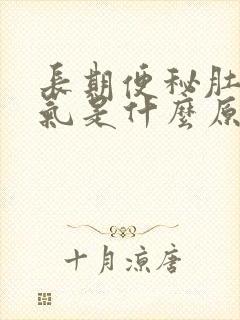 長期便秘肚
氣是什麼原
十月涼唐